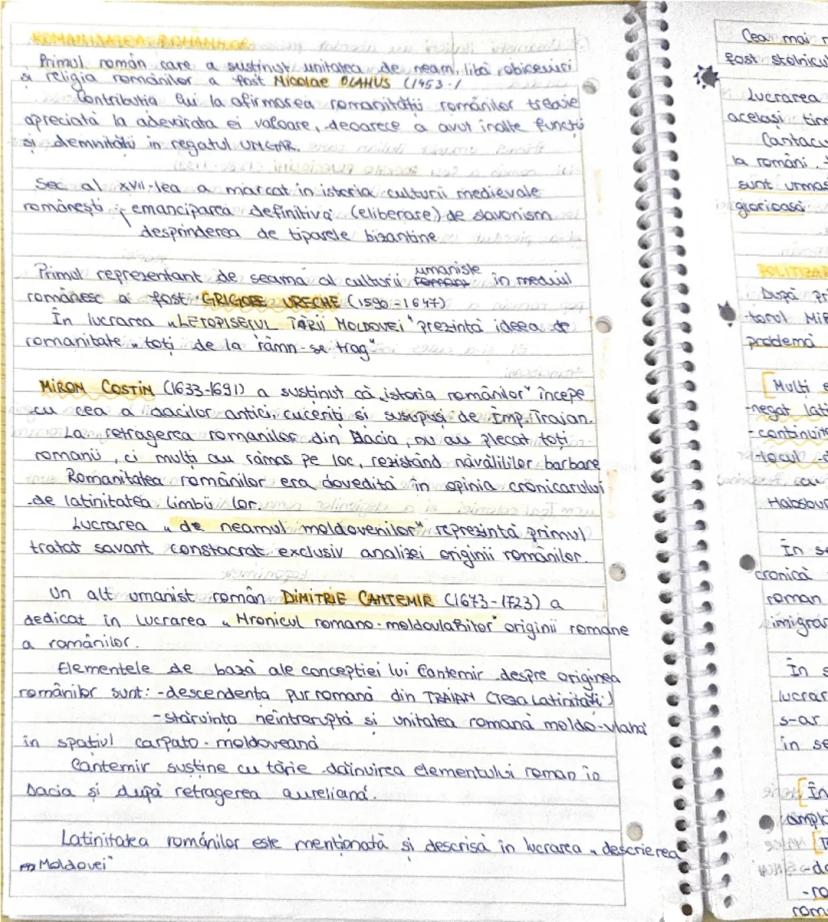 ROMANITATEA ROMÂNILOR
Primul român care a susținut unitatea de neam, libă, obiceiuri
și religia românilor a fost Nicolae OLAHUS (1453-1
Contribuția lui la afirmarea romanității românilor trebuie
apreciată la adevărata ei valoare, deoarece a avut înalte funcții
și demnități în regatul UNGAR.
Sec al XVII-lea a marcat în istoria culturii medievale
românești: emanciparea definitivă (eliberare) de slavonism
desprinderea de tiparele bizantine
Primul reprezentant de seamă al culturii umaniste în mediul
românesc a fost GRIGORE URECHE (1590-1647)
În lucrarea „LETOPISEȚUL ȚĂRII MOLDOVEI" prezintă ideea de
romanitate „toți de la râmn-se trag"
MIRON COSTIN (1633-1691) a susținut că „istoria românilor" începe
cu cea a dacilor antici, cuceriți și supuși de Imp. Traian.
La retragerea romanilor din Dacia, nu au plecat toți
romanii, ci mulți au rămas pe loc, rezistând năvălililor barbare
Romanitatea românilor era dovedită în opinia cronicarului
de latinitatea limbii lor.
Lucrarea „de neamul moldovenilor" reprezintă primul
tratat savant constacrat exclusiv analizei originii românilor.
Un alt umanist român DIMITRIE CANTEMIR (1673-1723) a
dedicat în lucrarea „Hronicul romano-moldovlahilor" originii romane
a românilor.
Elementele de bază ale concepției lui Cantemir despre originea
românilor sunt: -descendența pur romană din TRAIAN (Teza Latinității)
-stăruința neîntreruptă și unitatea romană moldo-vlahă
în spațiul carpato-moldoveană
Cantemir susține cu tărie dăinuirea elementului roman în
Dacia și după retragerea aureliană.
Latinitatea românilor este menționată și descrisă în lucrarea „descrierea
Moldovei"
Cea mai
fost stolnicu
Lucrarea
același tim
Cantacu
la români.
sunt urmaș
glorioasă
POLITIZA
După pr
torul Mi
problemă
[Mulți
-negat lati
-continuit
-locul
cau
Habsbur
În s
cronică
roman
imigrar
În s
lucrar
s-ar
în se
[În
ampl
-do
-ro
rom